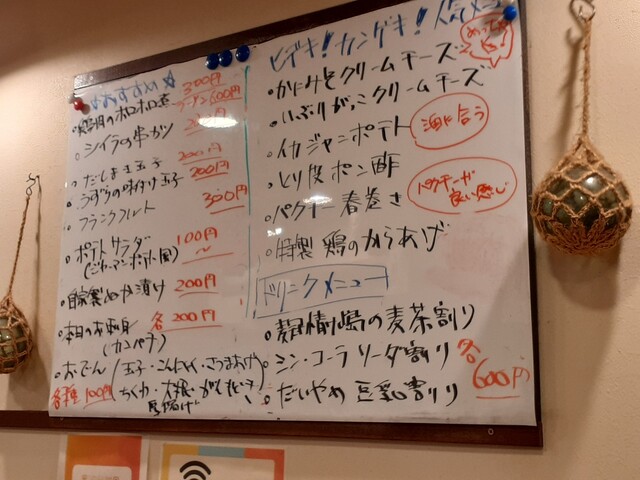 おすすめ☆
300円
ラーメン600円
シイラの串カツ
だしまき玉子 200円
うずらの味付け玉子 200円
フランクフルト 300円
ポテトサラダ 100円〜
(ジャーマンポテト風)
自家製ぬか漬け 200円
本日のお刺身 各200円
(カンパチ)
おでん(玉子・こんにゃく・さつまあげ
各種100円 ちくわ・大根・がんもどき
厚揚げ
ヒデキ!カンゲキ!人気メニュー
かにみそクリームチーズ
いぶりがっこクリームチーズ
イカジャンポテト 酒に合う
とり皮ポン酢
パクチー春巻き パクチーが良い感じ
自家製 鶏のからあげ
ドリンクメニュー
の麦茶割り
シン・コーラ リーダ割り 各600円
だいやめ 豆乳割り